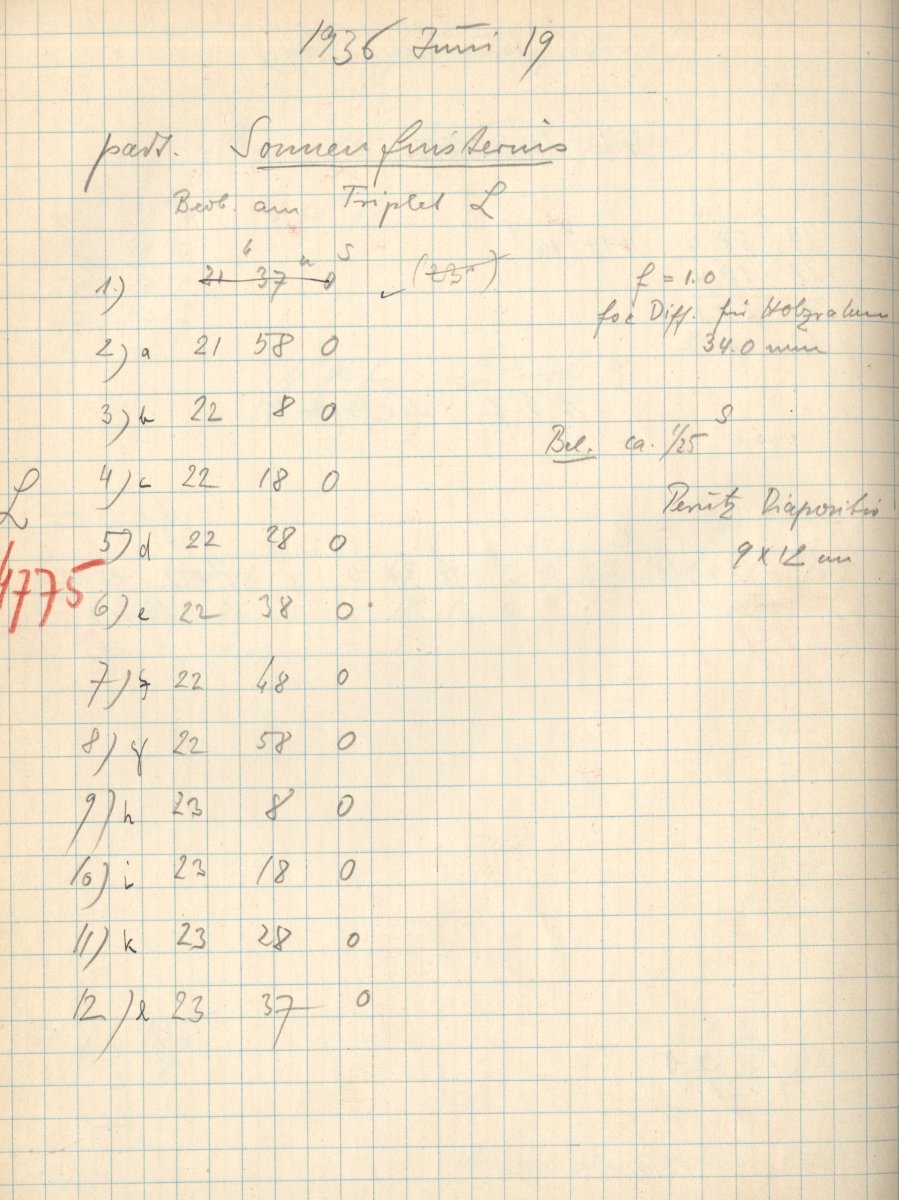 1936 Juni 19
part. Sonnenfinsternis
Beob. am Triplet L
h m s
1) 21 37 0
f = 1.0
foc Diff. für Holzrahm
2) a 21 58 0
34.0 mm
3) b 22 8 0
Bel. ca. 1/25 s
4) c 22 18 0
L
Perutz Diapositiv
5) d 22 28 0
9 x 12 cm
4775
6) e 22 38 0
7) f 22 48 0
8) g 22 58 0
9) h 23 8 0
10) i 23 18 0
11) k 23 28 0
12) l 23 37 0